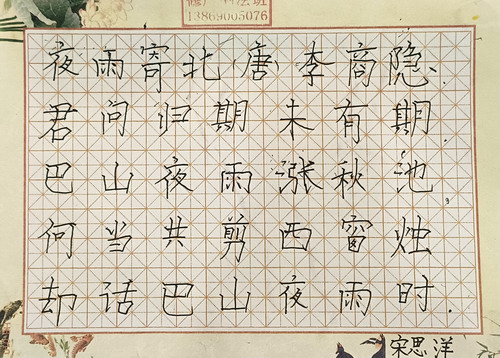 13869005076
夜雨寄北(唐)李商隐.
君问归期未有期.
巴山夜雨涨秋池
何当共剪西窗烛
却话巴山夜雨时.
宋思洋